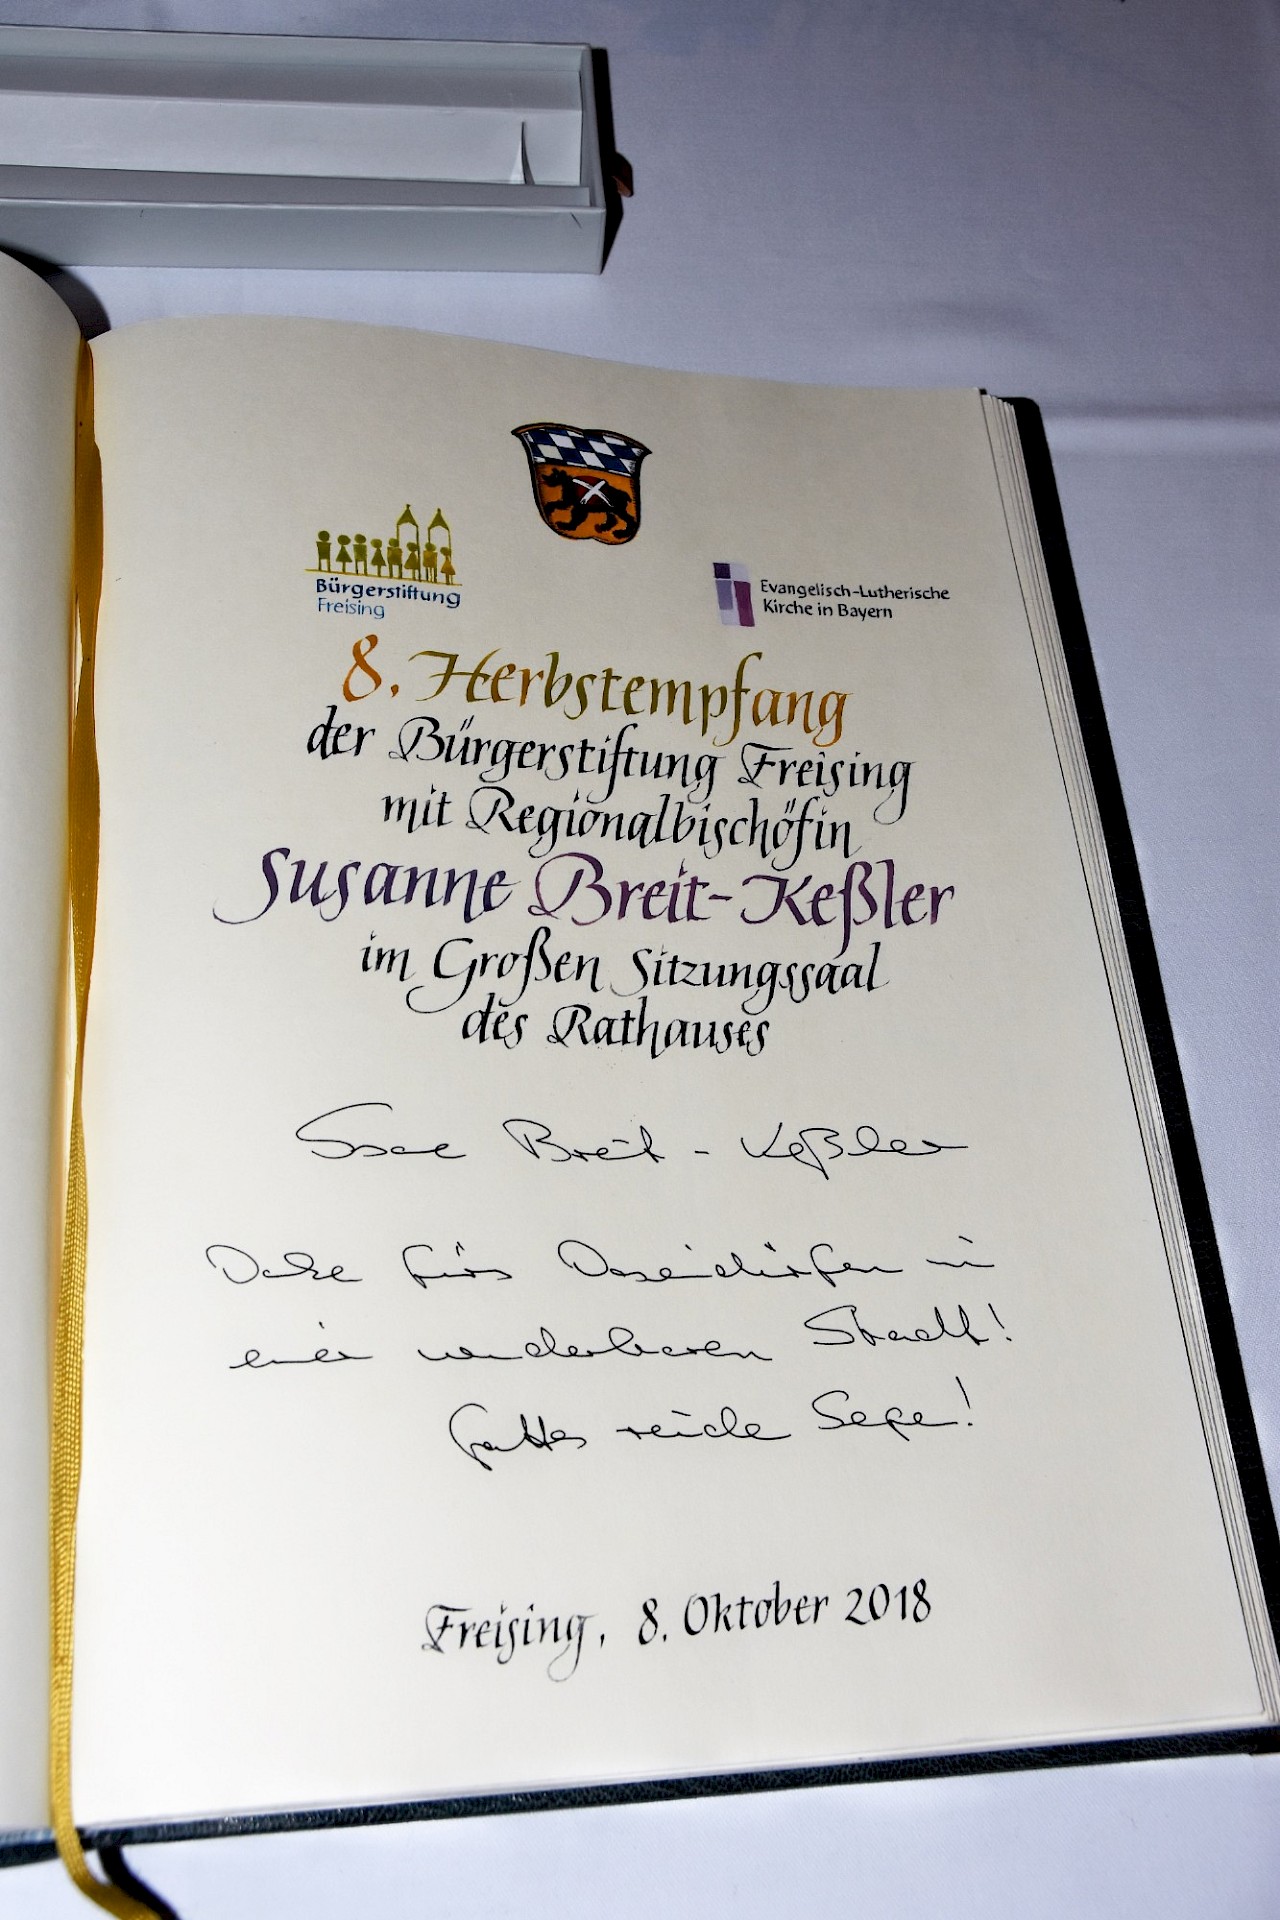 Bürgerstiftung
Freising
Evangelisch-Lutherische
Kirche in Bayern
8. Herbstempfang
der Bürgerstiftung Freising
mit Regionalbischöfin
Susanne Breit-Keßler
im Großen Sitzungssaal
des Rathauses
Susanne Breit-Keßler
Danke fürs Daseindürfen in
einer wunderbaren Stadt!
Gottes reichen Segen!
Freising, 8. Oktober 2018